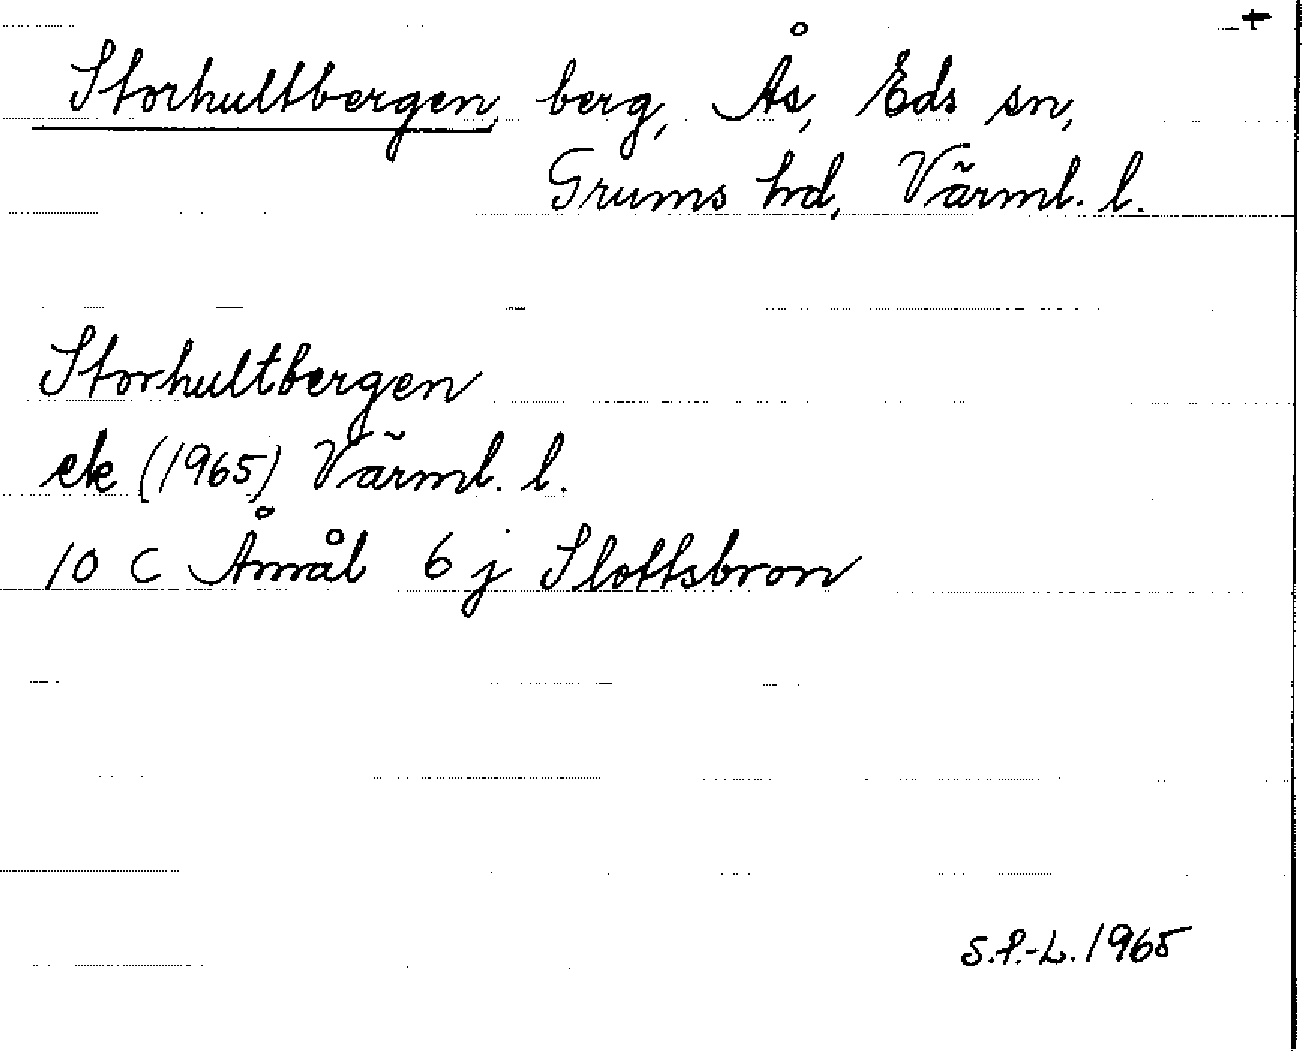 +
Storhultbergen, berg, Ås, Eds sn,
Grums hd, Värml. l.
Storhultbergen
ek (1965) Värml. l.
10 C Åmål 6 j Slottsbron
S.P.-L. 1965